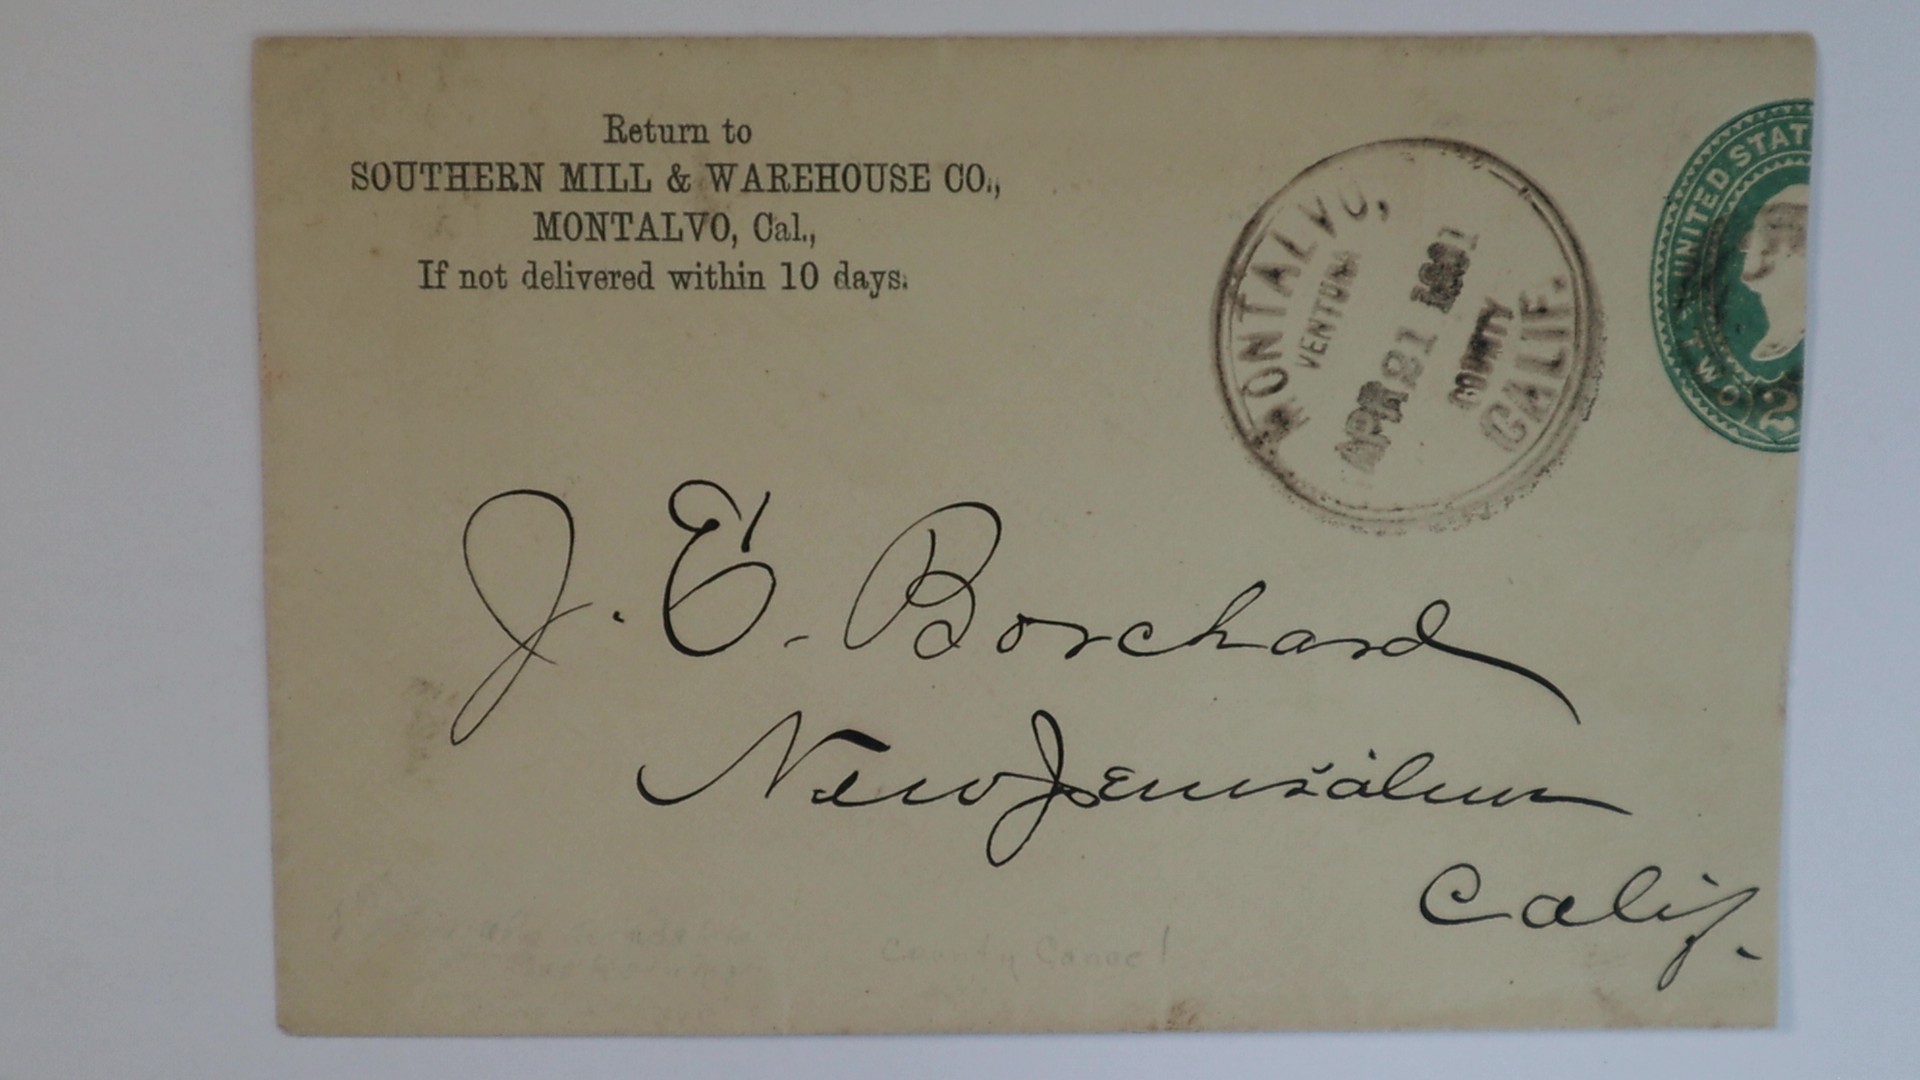 Return to
SOUTHERN MILL & WAREHOUSE CO.,
MONTALVO, Cal.,
If not delivered within 10 days.
MONTALVO,
VENTURA
APR 21 1891
COUNTY
CALIF.
UNITED STAT
TWO
2
J. E. Borchard
New Jerusalem
Calif.
County Cancel